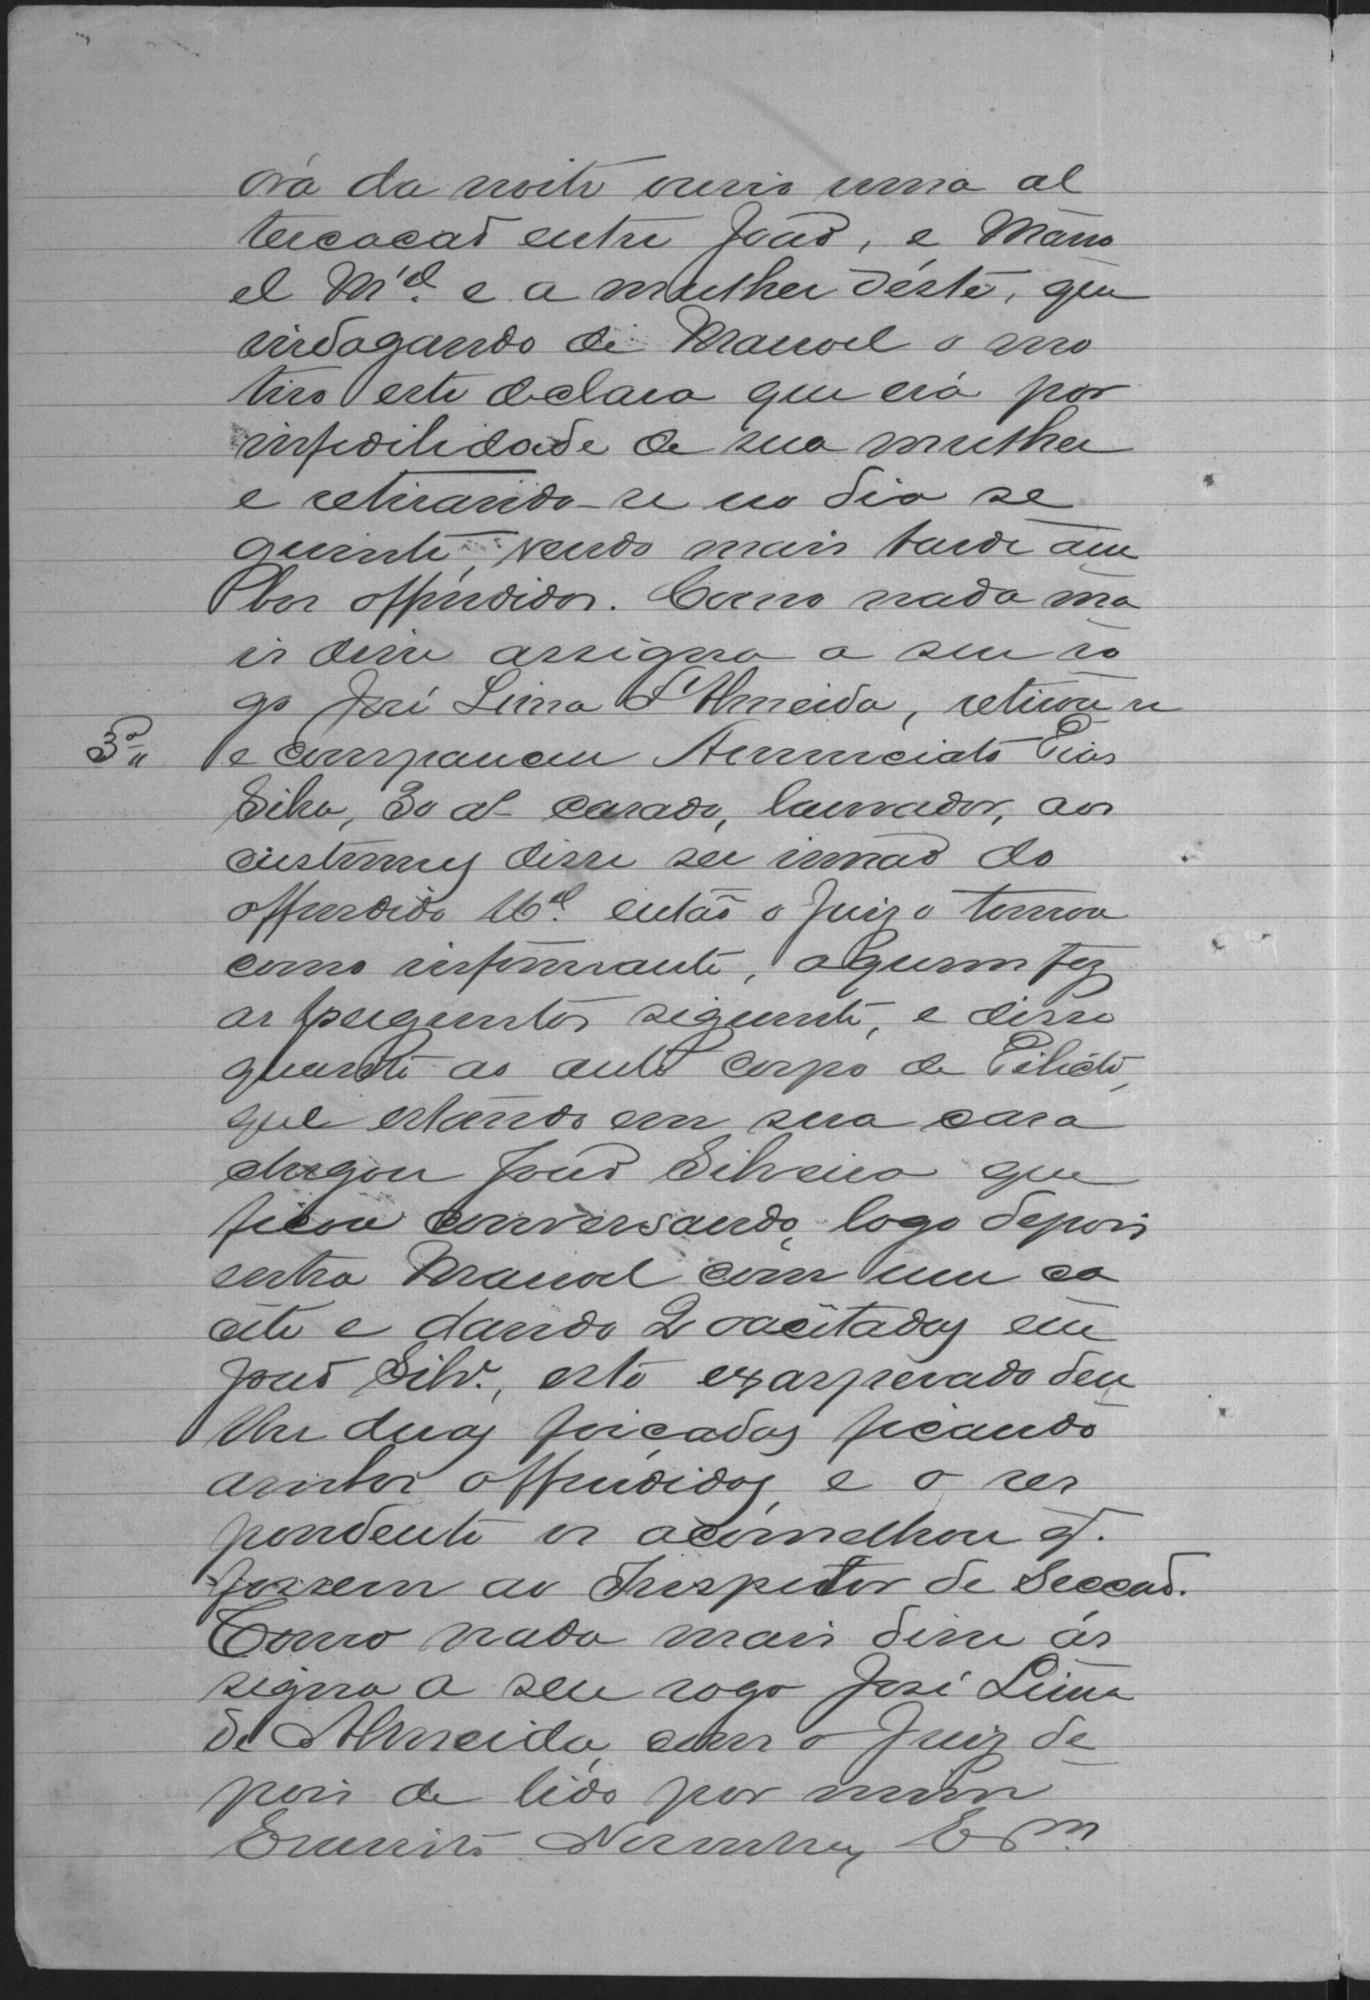 ora da noite ouvio uma al
tercacaõ entre Joaõ, e Mano
el M.el e a mulher déste, que
indagando de Manoel o mo
tivo este declara que erá por
infidilidade de sua mulher
e retirando-se no dia se
guinte, vendo mais tarde am
bos offendidos. Como nada ma
is disse assigna a seu ro
go José Lima d'Almeida, retirou se
3ª e compareceu Annunciato Dias
Silva, 30 a casado, lavrador, aos
custumes disse ser irmaõ do
offendido M.el então o Juizo tomou
como informante, a quem fez
as perguntas seguinte, e disse
quanto ao auto corpo de Delicto,
que estando em sua casa
chegou Joaõ Silveira que
ficou conversando, logo depois
entra Manoel com um ca
cête e dando 2 cacêtadas em
Joaõ Silv.ª, este exasperado deu
lhe duas foiçadas ficando
ambos offendidos, e o res
pondente os aconselhou q.
fossem ao Inspector de Seccaõ.
Como nada mais disse ás
signa a seu rogo José Lima
de Almeida, com o Juiz de
pois de lido por mim
Escrivão